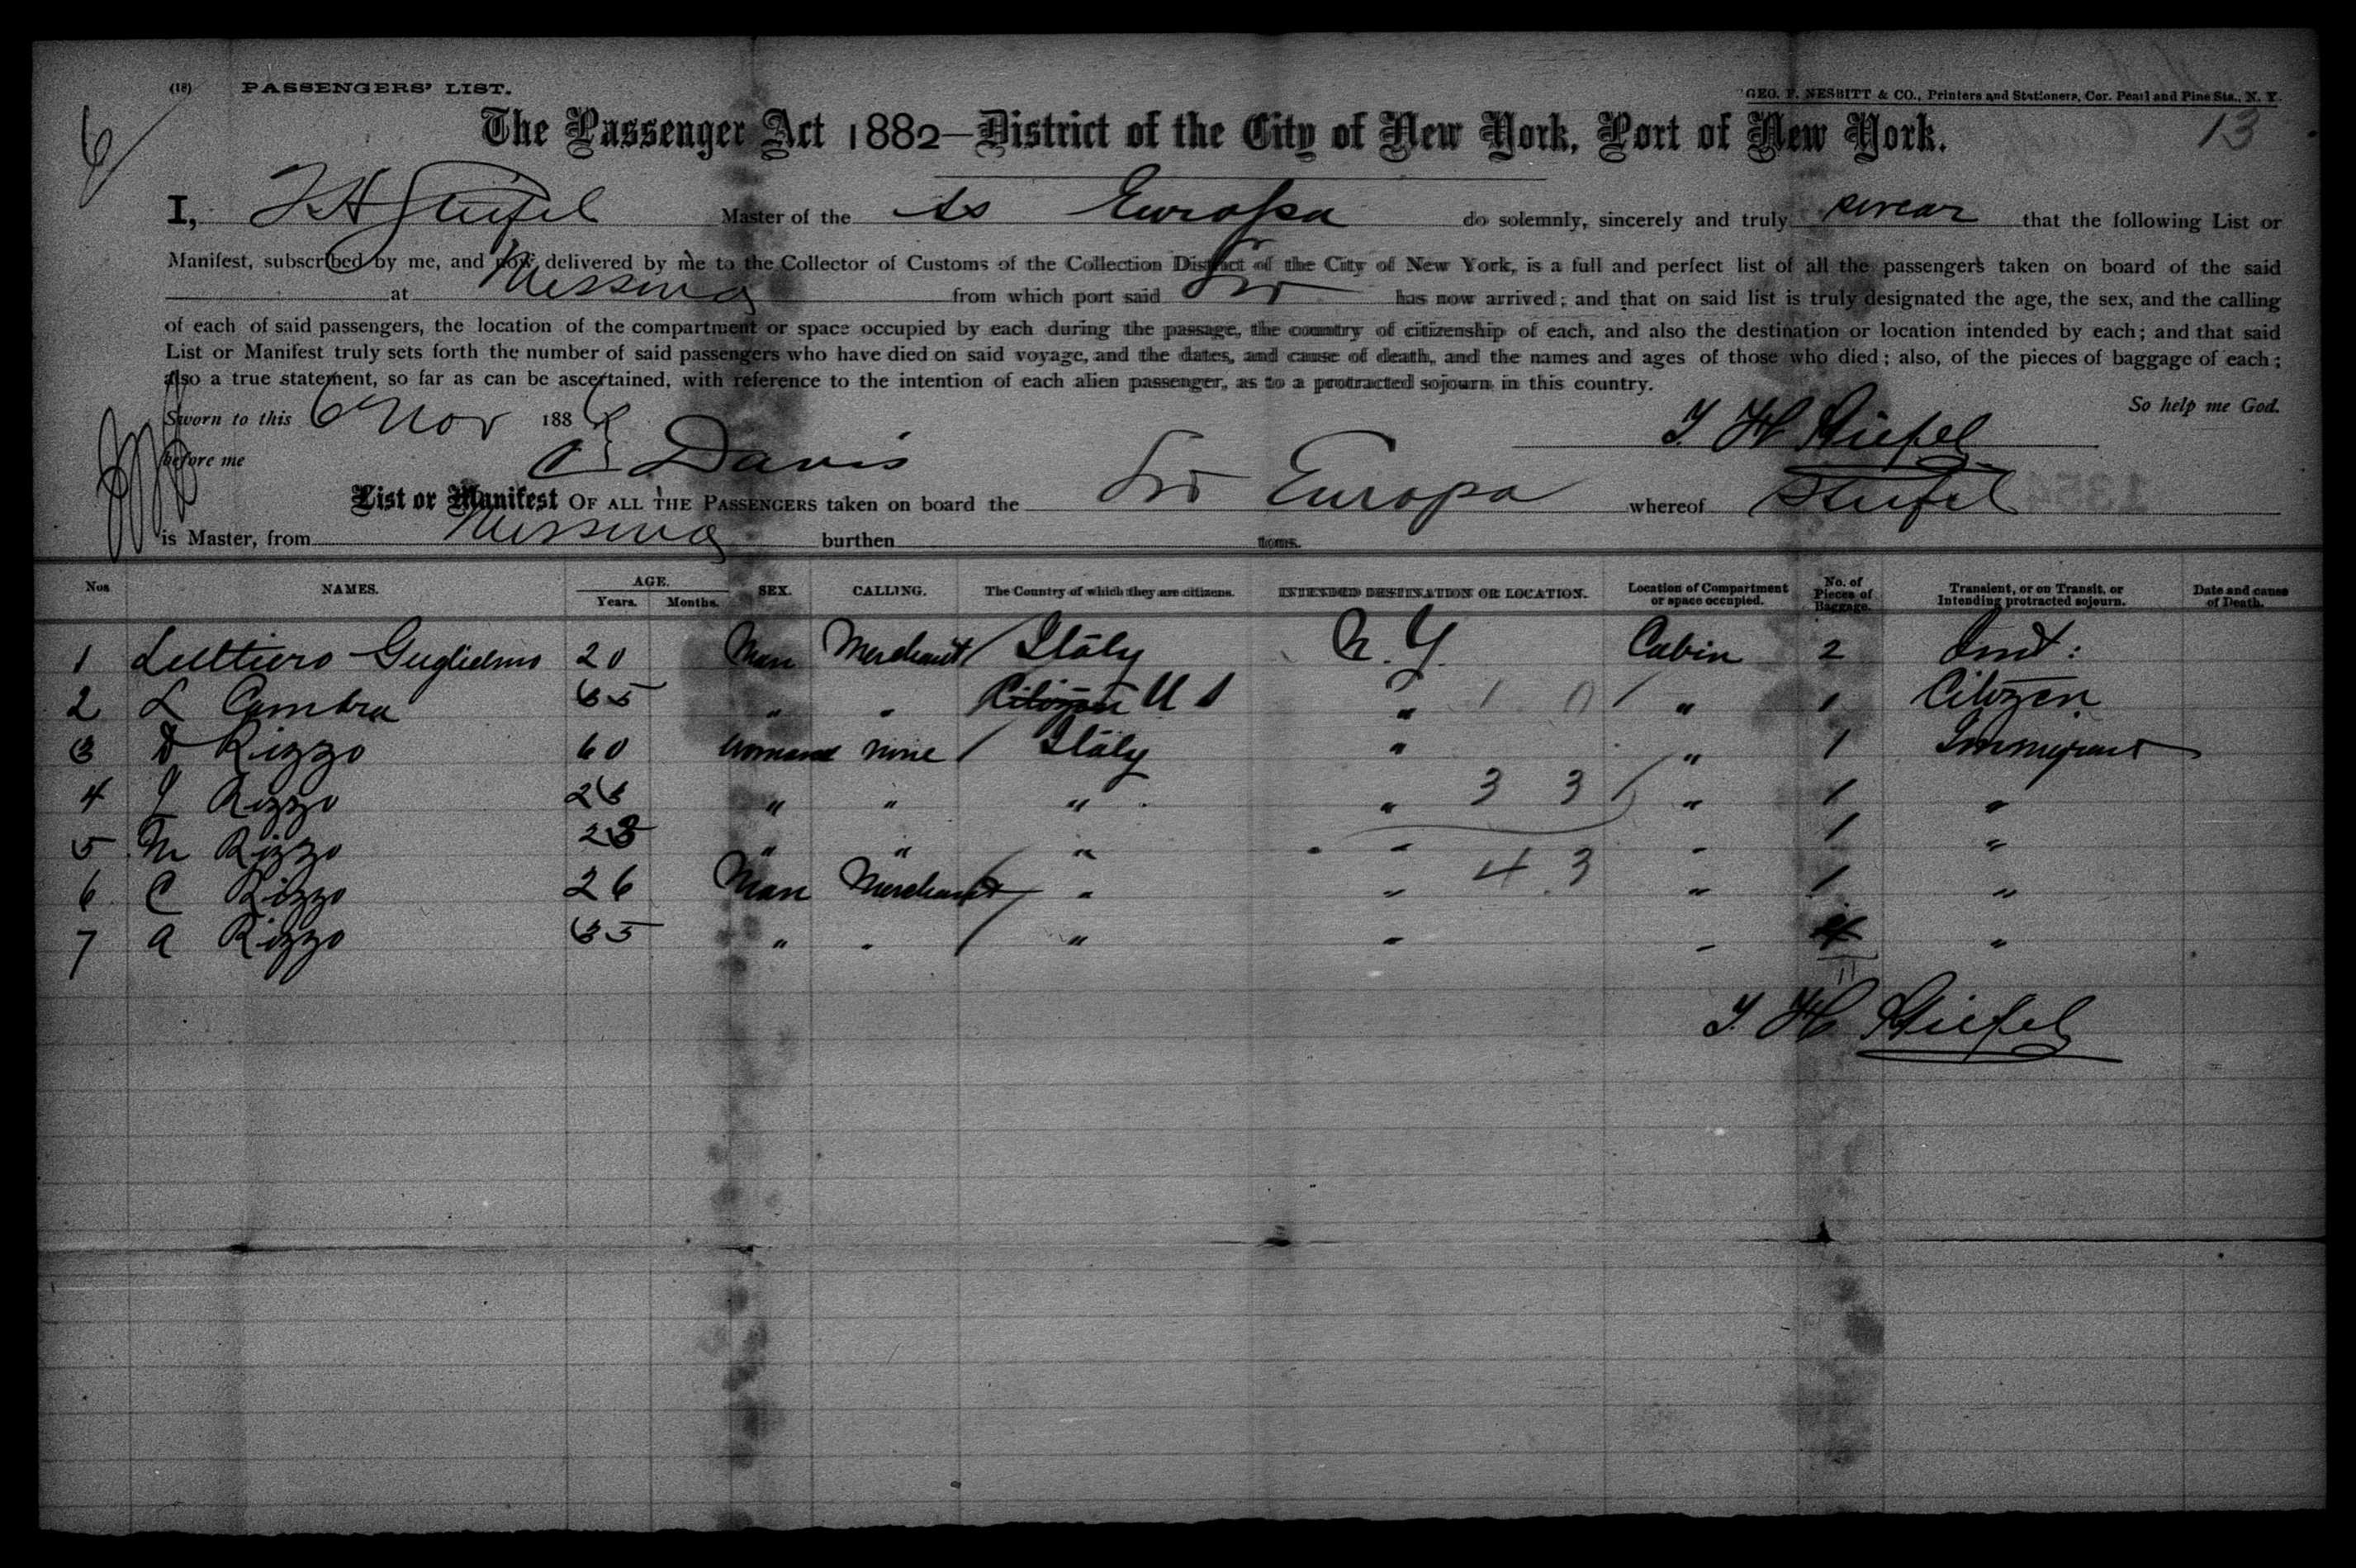 (18) PASSENGERS' LIST.
GEO. F. NESBITT & CO., Printers and Stationers, Cor. Pearl and Pine Sts., N. Y.
The Passenger Act 1882—District of the City of New York, Port of New York.
13
6
I, Stiefel Master of the ss Europa do solemnly, sincerely and truly swear that the following List or
Manifest, subscribed by me, and now delivered by me to the Collector of Customs of the Collection District of the City of New York, is a full and perfect list of all the passengers taken on board of the said
at Messina from which port said Str has now arrived; and that on said list is truly designated the age, the sex, and the calling
of each of said passengers, the location of the compartment or space occupied by each during the passage, the country of citizenship of each, and also the destination or location intended by each; and that said
List or Manifest truly sets forth the number of said passengers who have died on said voyage, and the dates, and cause of death, and the names and ages of those who died; also, of the pieces of baggage of each;
also a true statement, so far as can be ascertained, with reference to the intention of each alien passenger, as to a protracted sojourn in this country.
Sworn to this 6 Nov 188
So help me God.
H Stiefel
before me Davis
List or Manifest OF ALL THE PASSENGERS taken on board the Str Europa whereof Stiefel
is Master, from Messina burthen tons.
Nos NAMES. AGE. Years. Months. SEX. CALLING. The Country of which they are citizens. INTENDED DESTINATION OR LOCATION. Location of Compartment or space occupied. No. of Pieces of Baggage. Transient, or on Transit, or Intending protracted sojourn. Date and cause of Death.
1 Guglielmo 20 Man Merchant / Italy N. Y. Cabin 2
2 L Cambra 65 " " Citizen U S " 1 0 / " 1 Citizen
3 D Rizzo 60 woman none / Italy " " 1 Immigrant
4 Rizzo " " " " 3 3 / " 1 "
5 M Rizzo 23 " " " " " 1 "
6 C Rizzo 26 Man Merchant / " " 4 3 " 1 "
7 A Rizzo " " / " " " 4 "
11
H Stiefel